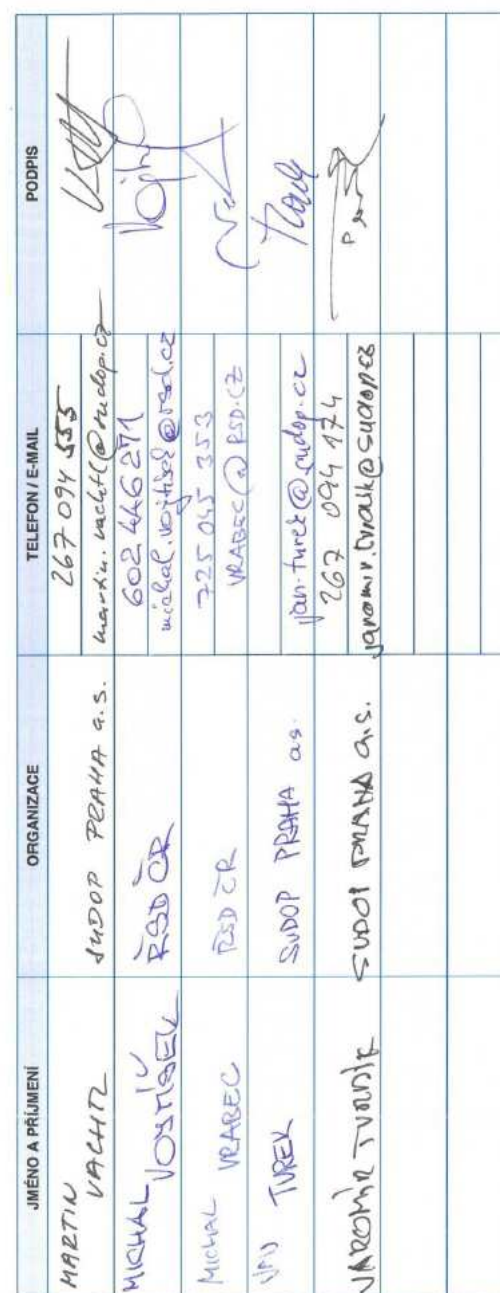 JMÉNO A PŘÍJMENÍ ORGANIZACE TELEFON / E-MAIL PODPIS
MARTIN VACHTL SUDOP PRAHA a.s. 267 094 555
martin.vachtl@sudop.cz
MICHAL VOJTÍŠEK ŘSD ČR 602 446 271
michal.vojtisek@rsd.cz
MICHAL VRABEC ŘSD ČR 725 045 353
VRABEC@RSD.CZ
JAN TUREK SUDOP PRAHA a.s.
jan.turek@sudop.cz
JAROMÍR SUDOP PRAHA a.s. 267 094 174